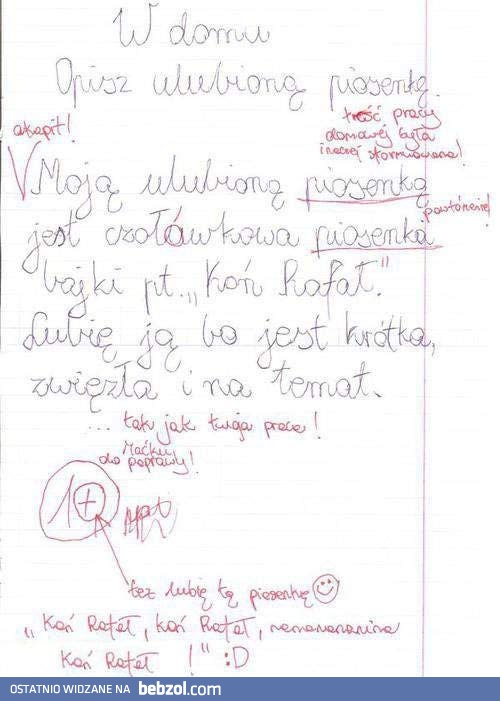 W domu
Opisz ulubioną piosenkę.
treść pracy
domowej była
inaczej sformułowana!
akapit!
V Moją ulubioną piosenką
powtórzenie!
jest czołówkowa piosenka
bajki pt. „Koń Rafał."
Lubię ją bo jest krótka,
zwięzła i na temat.
... tak jak twoja praca!
Maćku
do poprawy!
1+
też lubię tą piosenkę
„Koń Rafał, koń Rafał, nananananana
Koń Rafał !" :D
OSTATNIO WIDZIANE NA bebzol.com